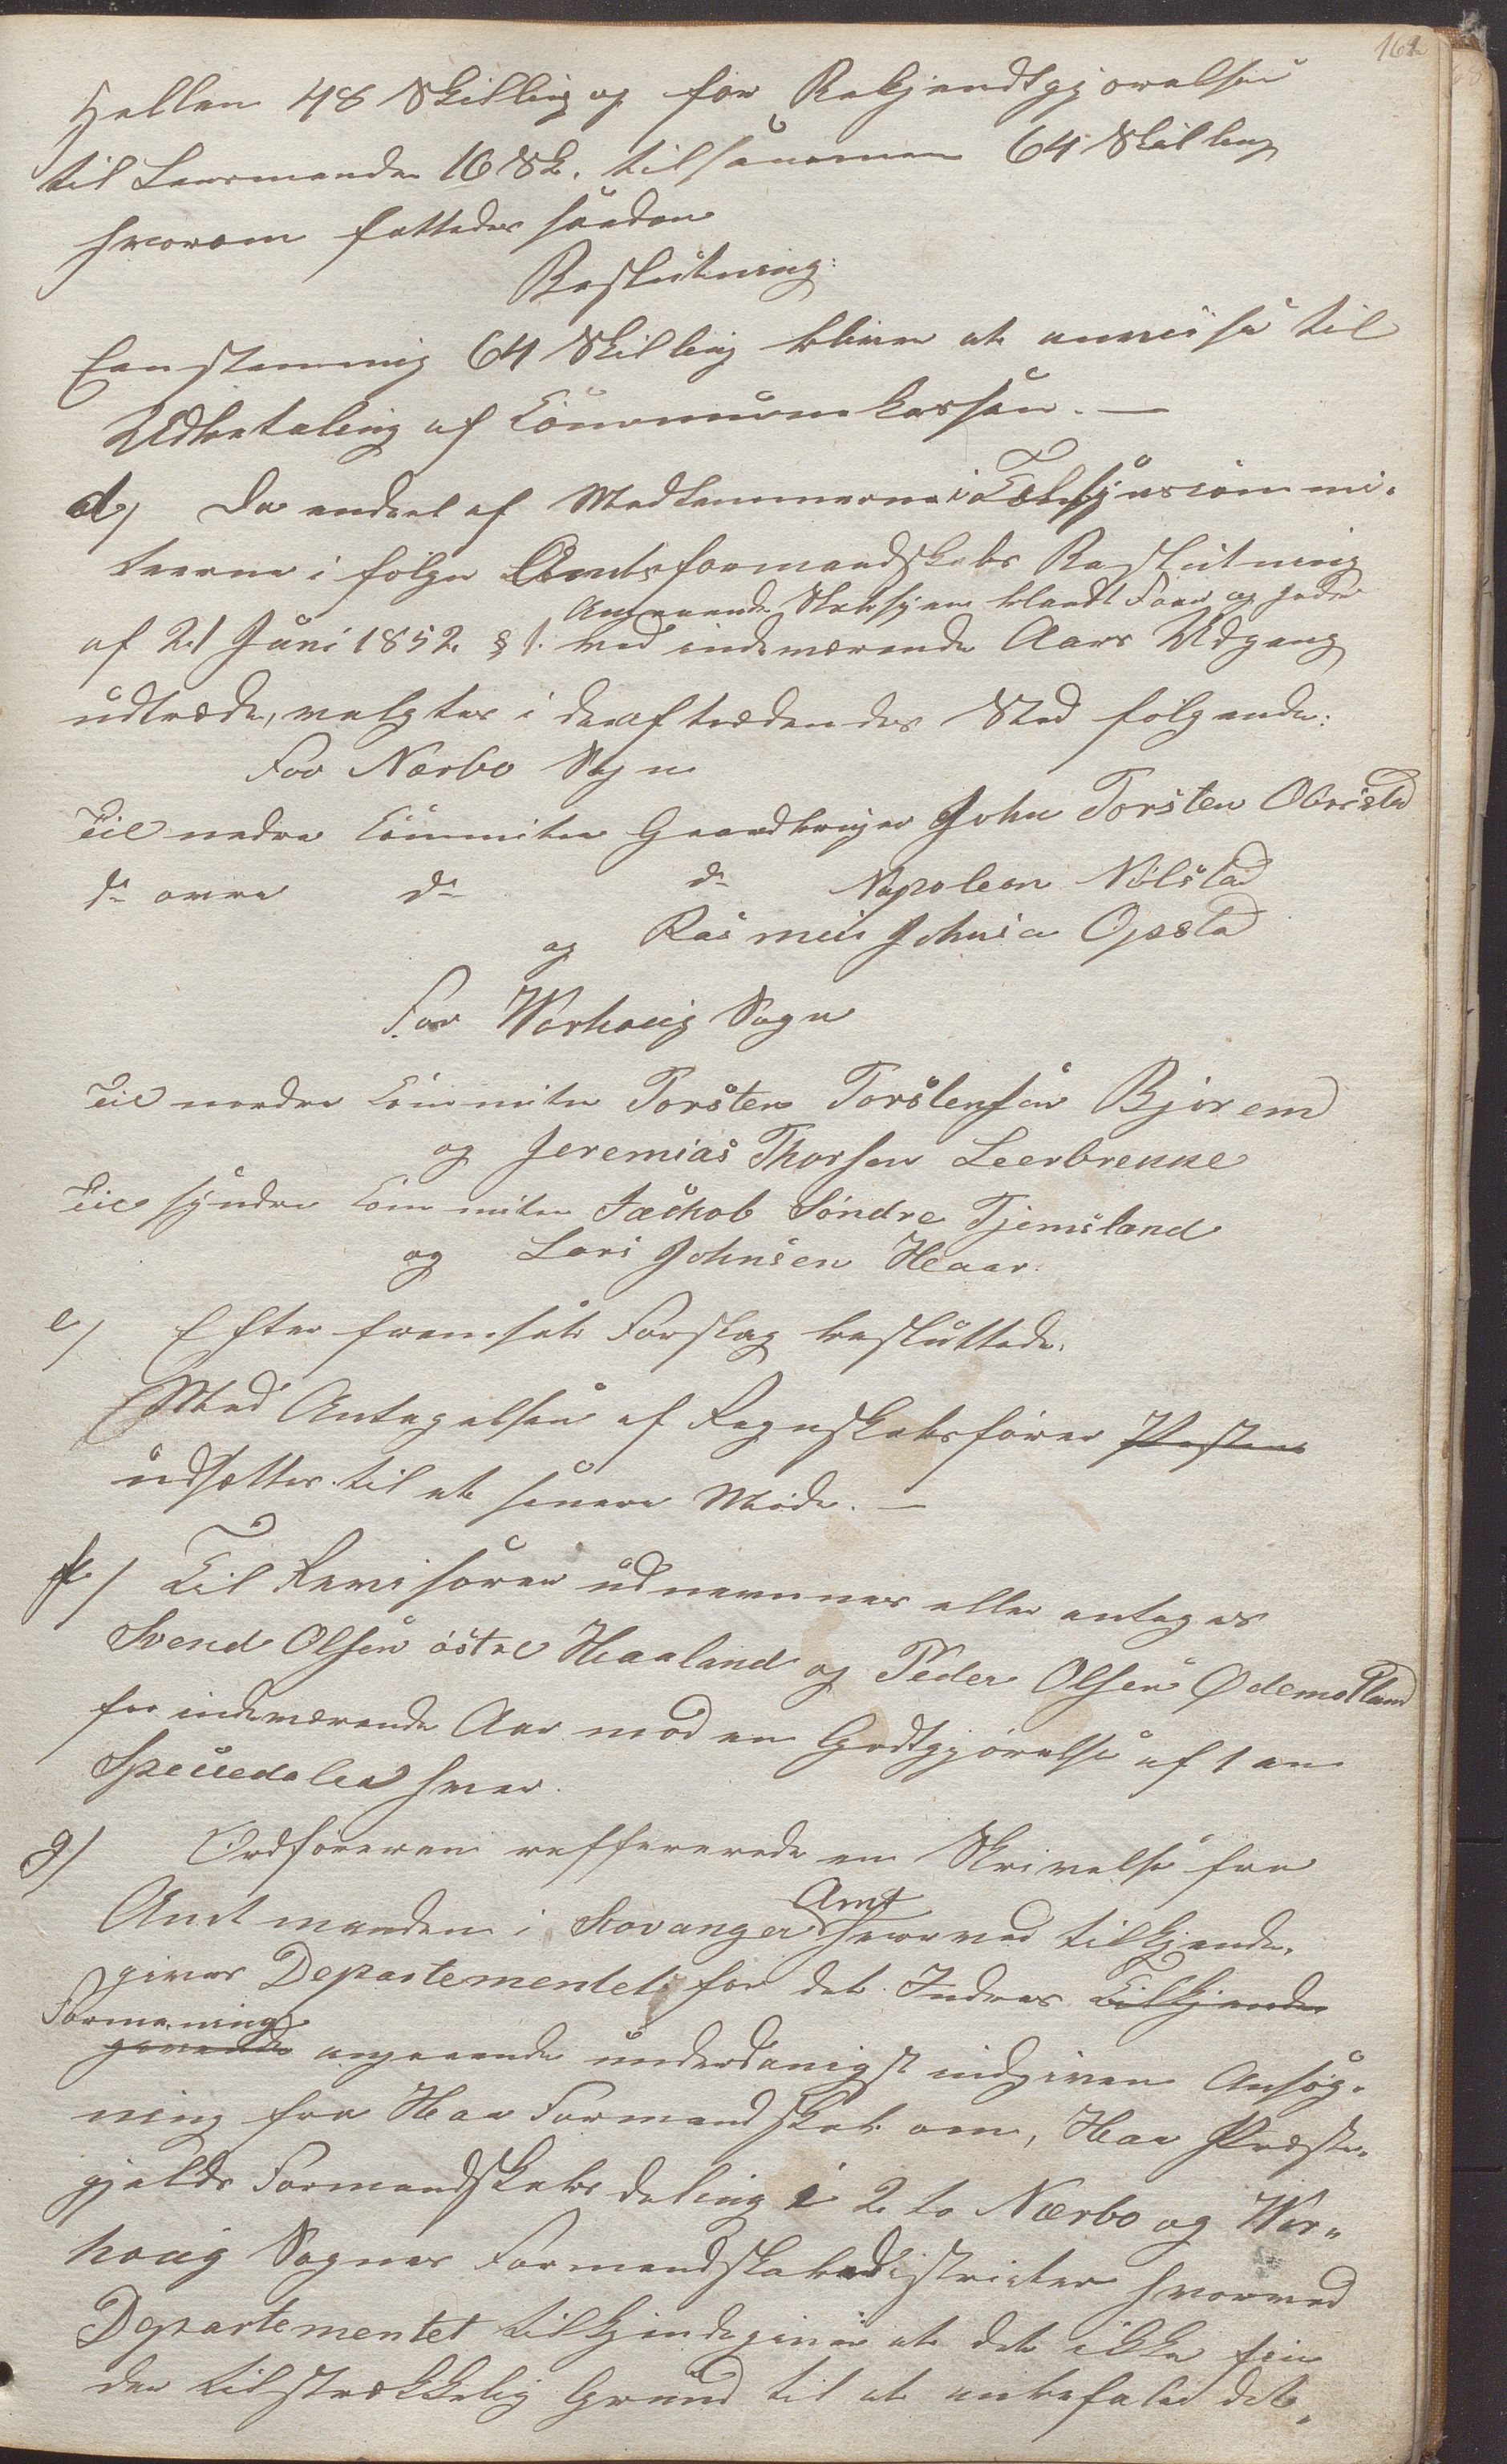 162
Hellen 48 Skilling og for Bekjendtgjørelsen
til Lensmanden 16 Sk. tilsammen 64 Skilling
hvorom fattedes saadan
Beslutning:
Eenstemmig 64 Skilling bliver at anvise til
Udbetaling af Communekassen. —
d) Da endeel af Medlemmerne i
teerne i følge Amtsformandskabs Beslutning
Angaaende Skabsygen blandt Faar og Geder
af 21 Juni 1852 § 1. ved indeværende Aars Udgang
udtræde, valgtes i de aftrædendes Sted følgende:
For Nærbo Sogn
Til nedre Committee Gaardbruger John Torsten Obrestad
do øvre do do Napoleon Nølstad
og Rasmus Johnsen Opstad
For Warhoug Sogn
Til nordre Committe Torsten Torstensen Bjorem
og Jeremias Thorsen Leerbrekke
Til syndre Committe Jackob Søndre Tjemsland
og Lars Johnsen Haar.
e) Efter fremsat Forslag besluttede.
Med Antagelsen af Regnskabsfører Posten
udsættes til et senere Møde. —
f) Til Revisorer udnævnes eller antages
Svend Olsen østre Haaland og Peder Olsen Ødemotland
for indeværende Aar mod en Godtgjørelse af 1 en
Speciedaler hver.
g) Ordføreren reffererede en Skrivelse fra
Amt
Amtmanden i Stavanger hvorved tilkjende-
gives Departementet for det Indres Tilkjende
Formening
givende angaaende underdanigst indgiven Ansøg-
ning fra Haa Formandskab om, Haa Præste-
gjelds Formandskabs deling i 2 to Nærbo og War-
houg Sognes Formandskabsdistricter hvorved
Departementet tilkjendegiver at det ikke fin
der tilstrækkelig Grund til at anbefale det,